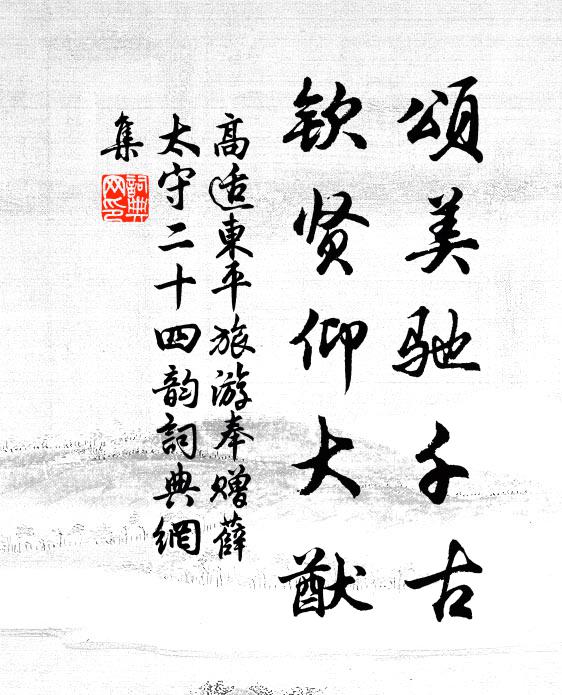 頌美驰千古
钦贤仰大猷
高适東平旅游奉赠薛
太守二十四韵詞典網
集
詞典网印